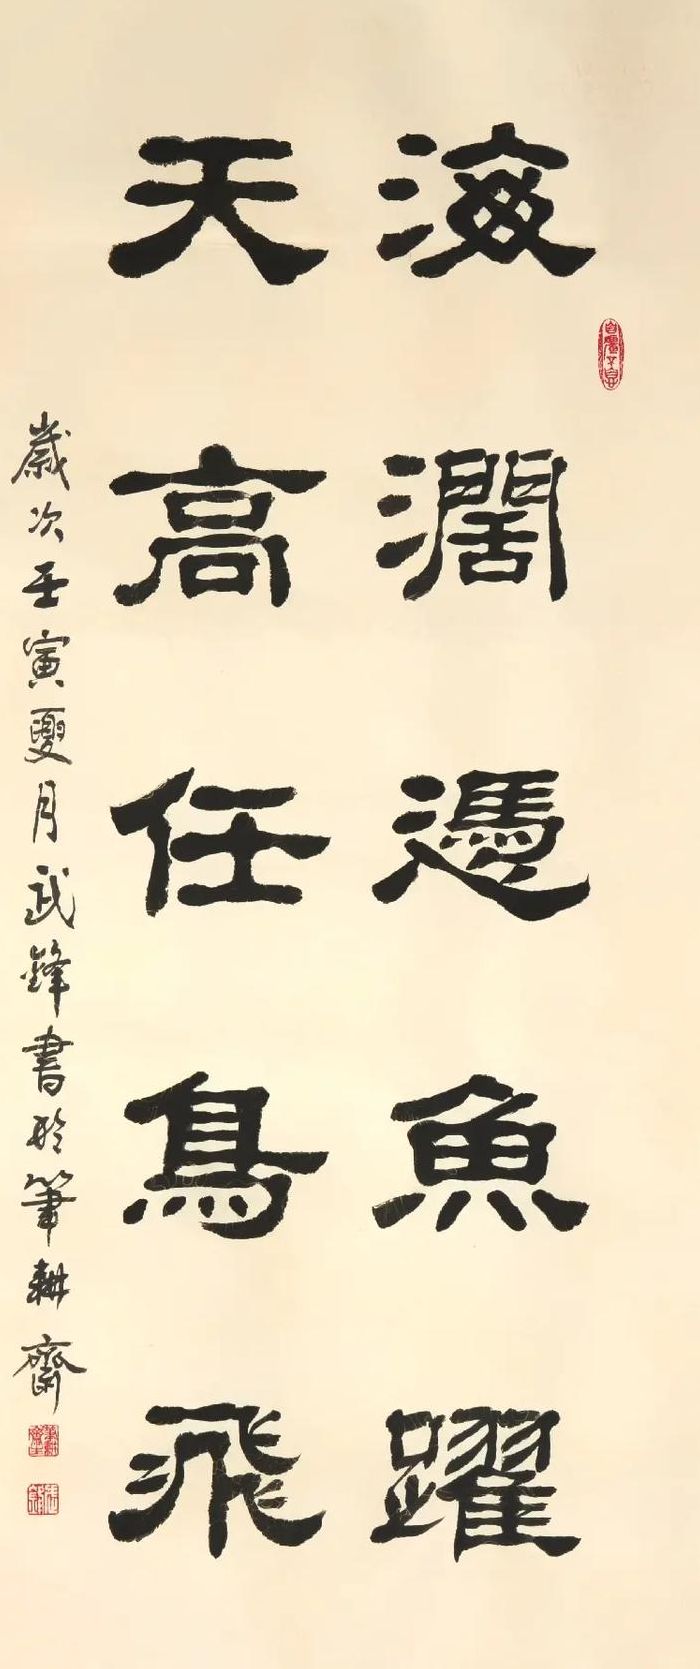 海濶憑魚躍
天高任鳥飛
歲次壬寅夏月武鋒書於筆耕齋
自彊不息